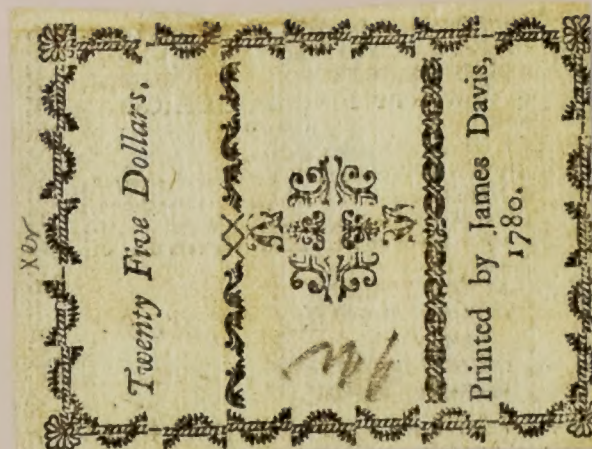 Twenty Five Dollars.
Printed by James Davis,
1780.